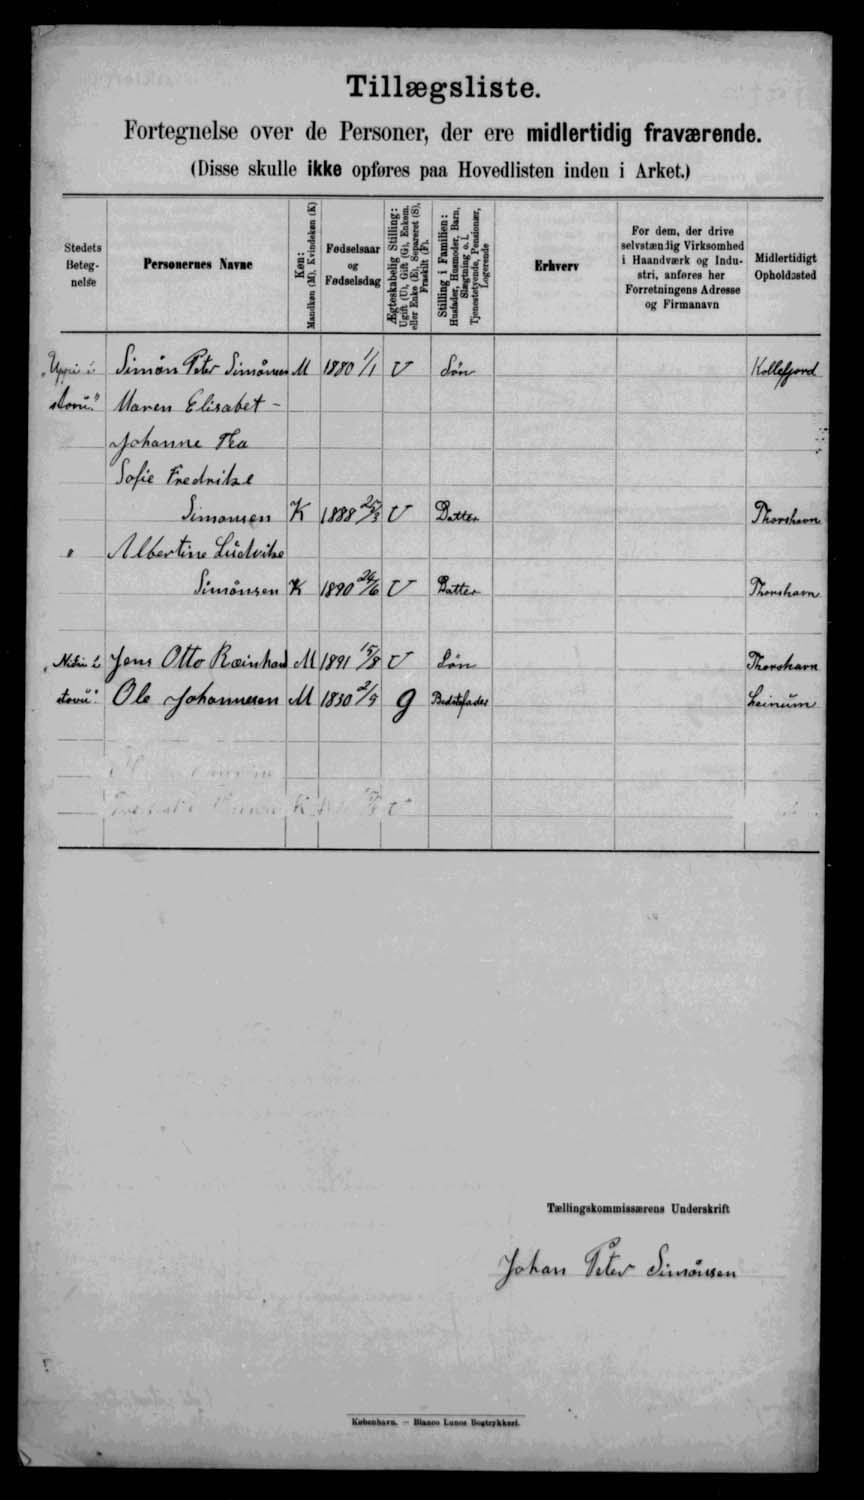 Tillægsliste.
Fortegnelse over de Personer, der ere midlertidig fraværende.
(Disse skulle ikke opføres paa Hovedlisten inden i Arket.)
Stedets Betegnelse
Personernes Navne
Køn: Mandkøn (M), Kvindekøn (K)
Fødselsaar og Fødselsdag
Ægteskabelig Stilling: Ugift (U), Gift (G), Enkem. eller Enke (E), Separeret (S), Fraskilt (F).
Stilling i Familien: Husfader, Husmoder, Barn, Slægtning o. l. Tjenestetyende, Pensionær, Logerende
Erhverv
For dem, der drive selvstændig Virksomhed i Haandværk og Industri, anføres her Forretningens Adresse og Firmanavn
Midlertidigt Opholdssted
„Uppi í Simon Peter Simonsen M 1880 1/1 U Søn Kollefjord
stovu." Maren Elisabet -
Johanne Thea
Sofie Fredrikke
Simonsen K 1888 25/3 U Datter Thorshavn
" Albertine Ludvike
Simonsen K 1890 26/6 U Datter Thorshavn
„Niðri í Jens Otto Reinhard M 1891 15/8 U Søn Thorshavn
stovu". Ole Johannesen M 1830 2/9 g Bedstefader Leinum
K U
Tællingskommissærens Underskrift
Johan Peter Simonsen
København. — Bianco Lunos Bogtrykkeri.